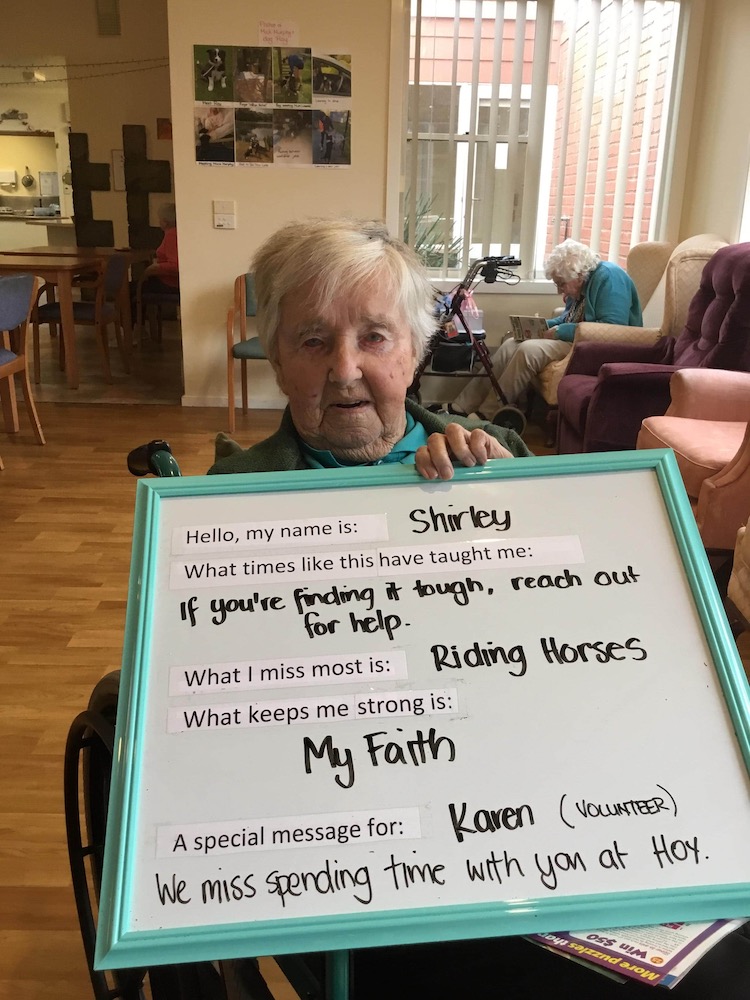 Hello, my name is: Shirley
What times like this have taught me:
If you're finding it tough, reach out
for help.
What I miss most is: Riding Horses
What keeps me strong is:
My Faith
A special message for: Karen (VOLUNTEER)
We miss spending time with you at Hoy.
More puzzles than
Win $50